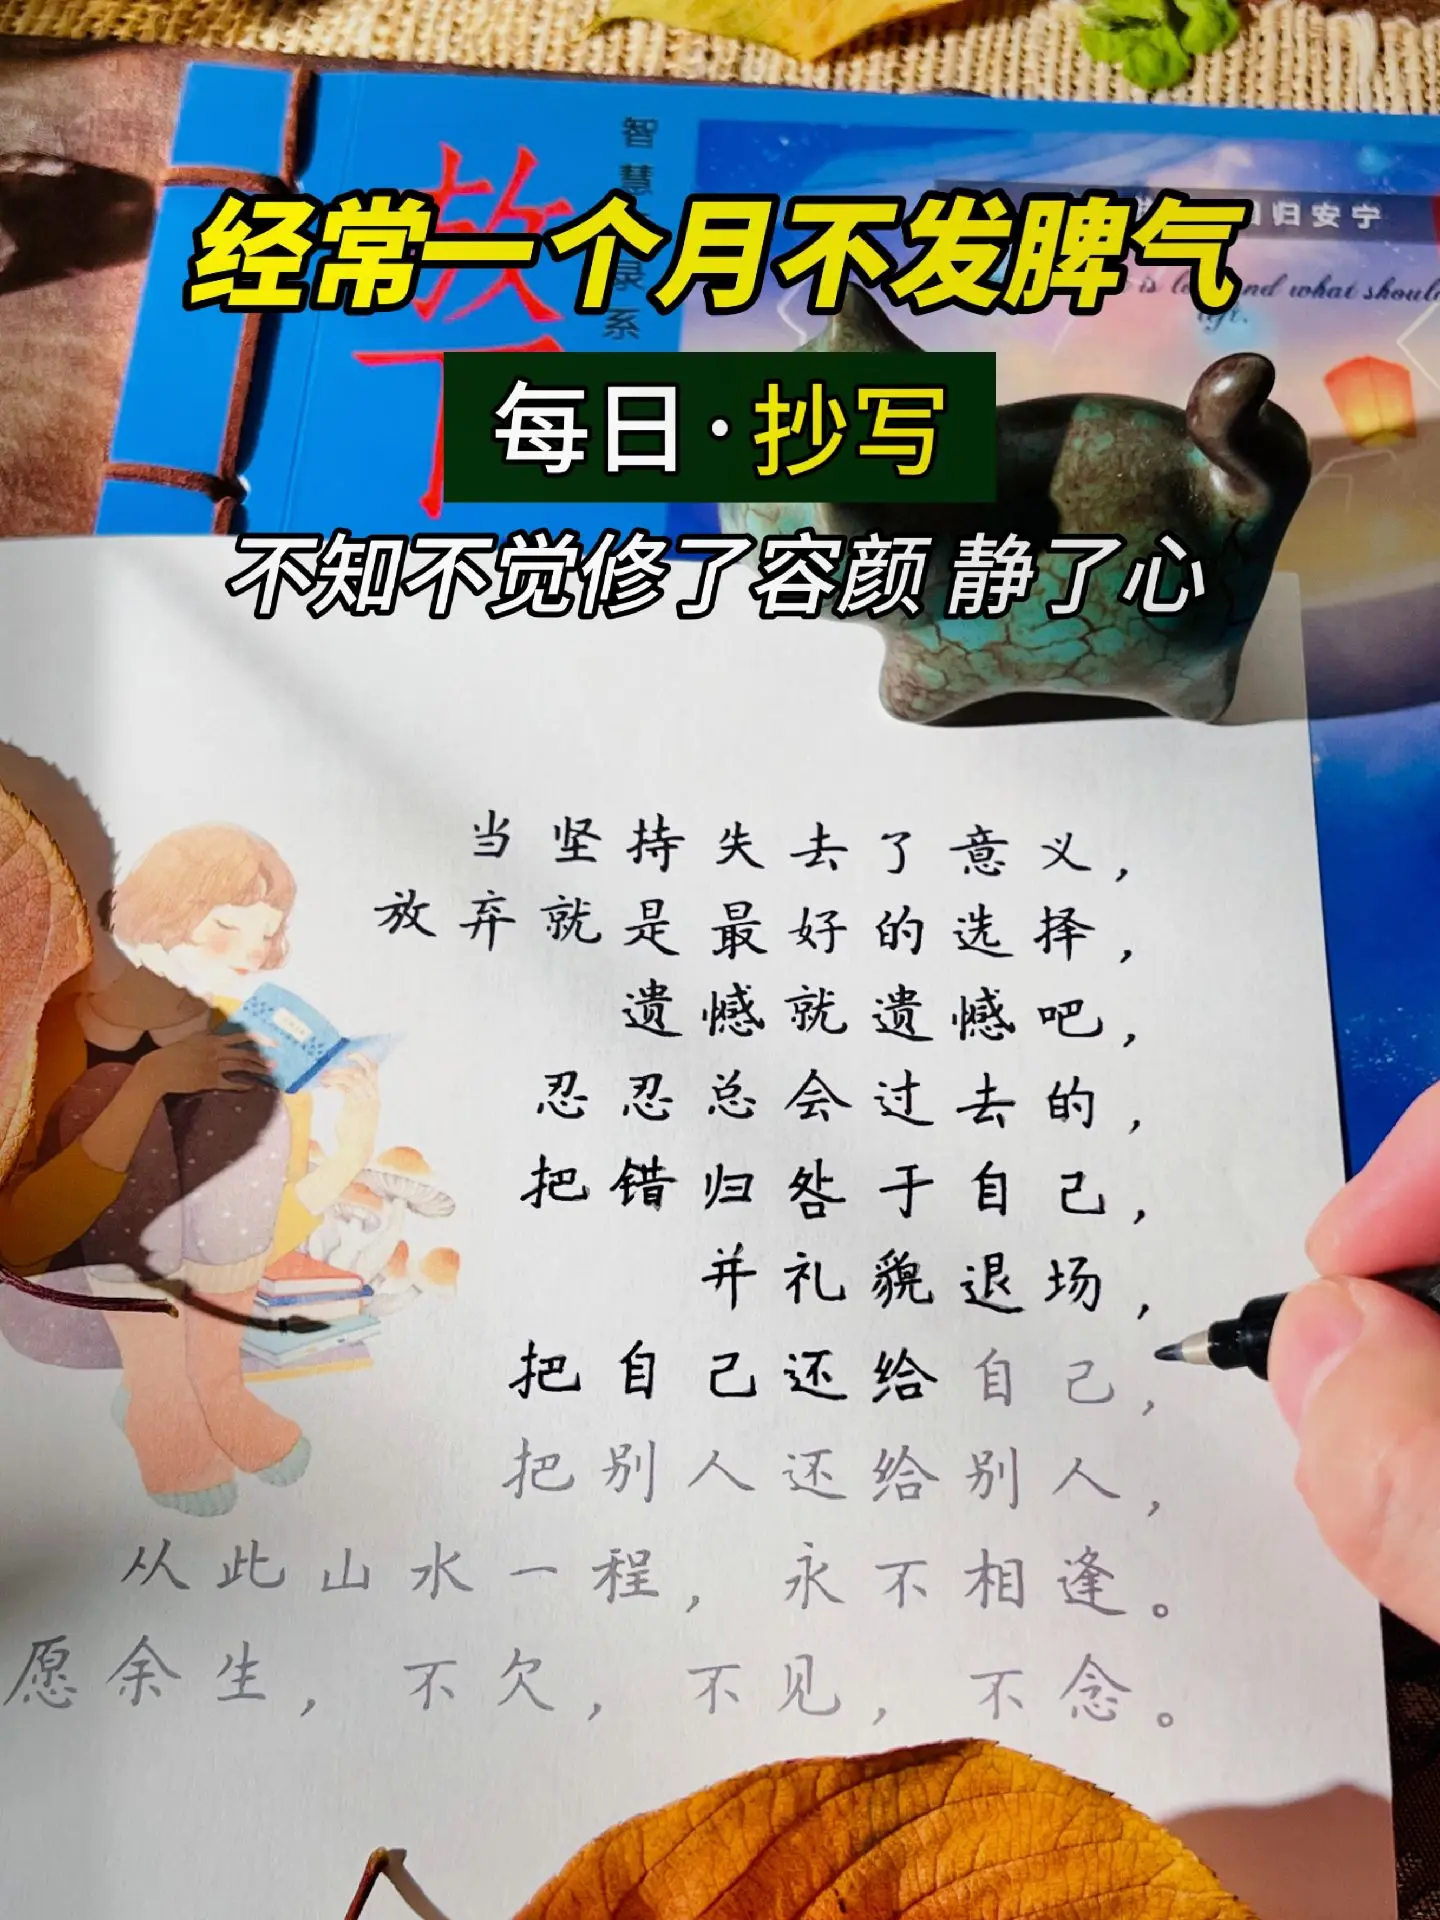 放下
智慧 录系
归安宁
经常一个月不发脾气
每日·抄写
is and what shoul
不知不觉修了容颜 静了心
当坚持失去了意义，
放弃就是最好的选择，
遗憾就遗憾吧，
忍忍总会过去的，
把错归咎于自己，
并礼貌退场，
把自己还给自己，
把别人还给别人，
从此山水一程，永不相逢。
愿余生，不欠，不见，不念。